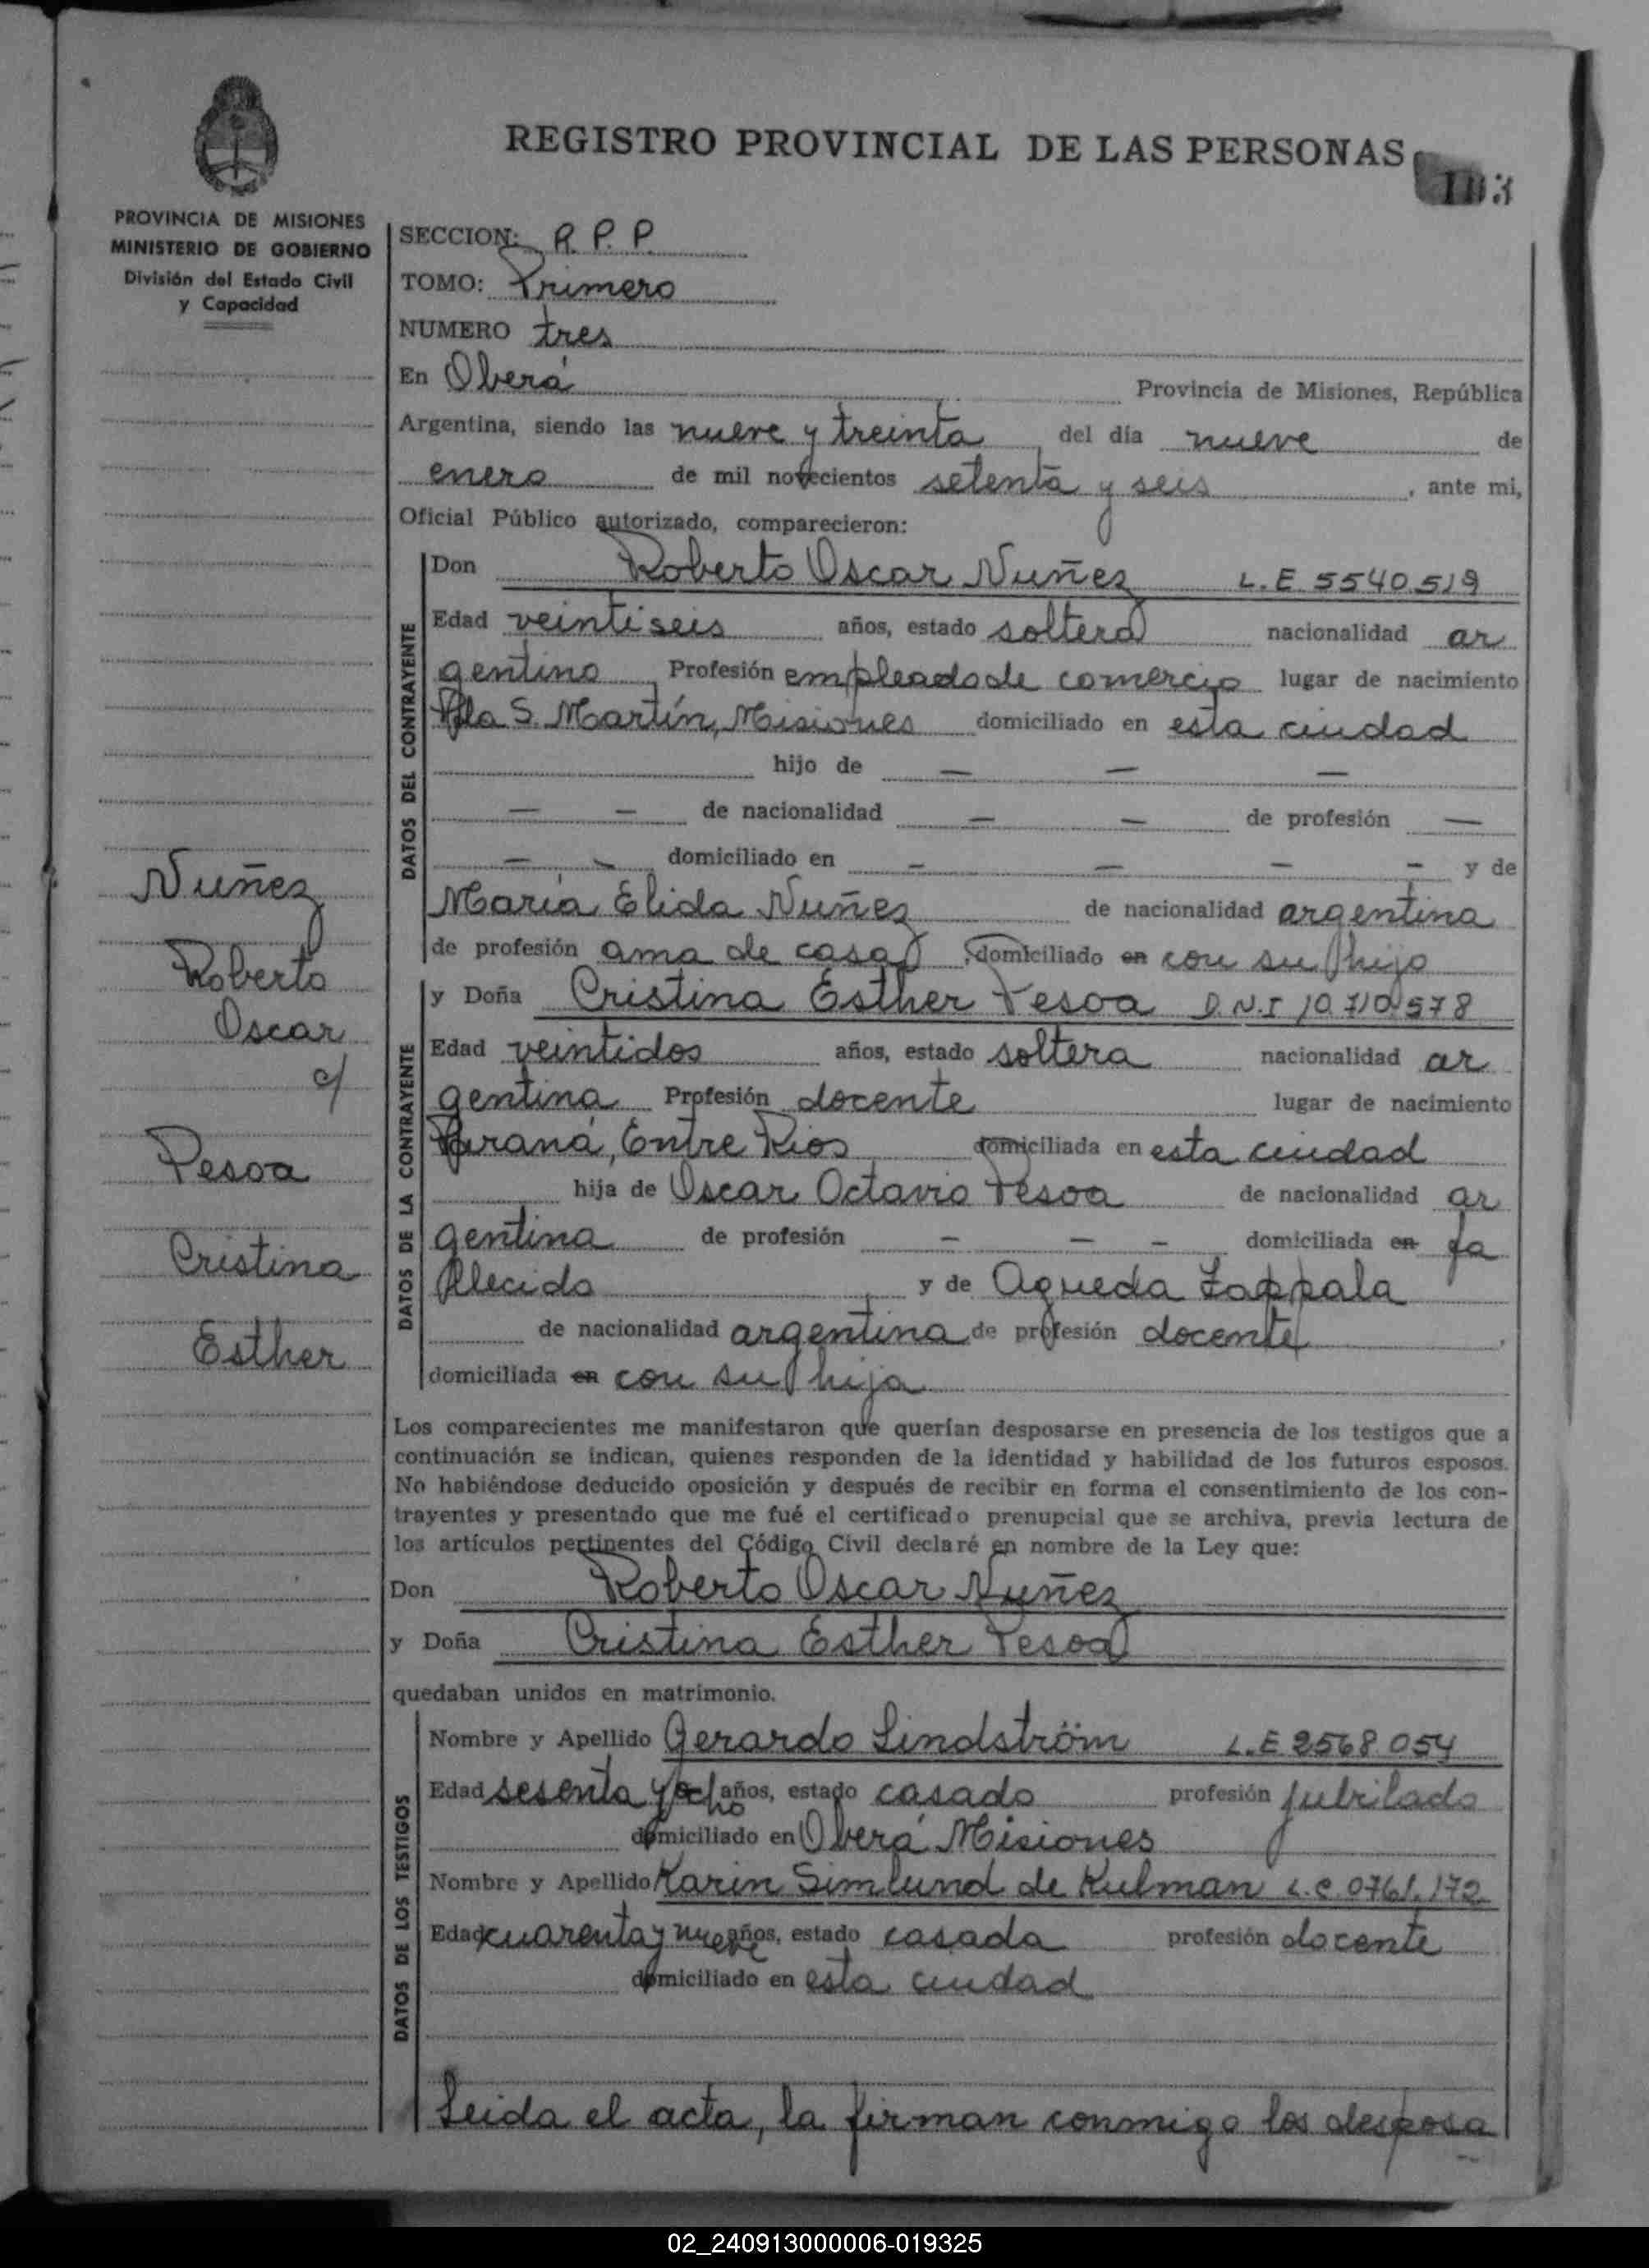 REGISTRO PROVINCIAL DE LAS PERSONAS
103
PROVINCIA DE MISIONES
MINISTERIO DE GOBIERNO
División del Estado Civil
y Capacidad
SECCION: R. P. P.
TOMO: Primero
NUMERO tres
En Oberá Provincia de Misiones, República
Argentina, siendo las nueve y treinta del día nueve de
enero de mil novecientos setenta y seis, ante mi,
Oficial Público autorizado, comparecieron:
DATOS DEL CONTRAYENTE
Don Roberto Oscar Nuñez L.E. 5540.519
Edad veintiseis años, estado soltero nacionalidad ar
gentino Profesión empleado de comercio lugar de nacimiento
Pto S. Martín, Misiones domiciliado en esta ciudad
hijo de — — —
— — de nacionalidad — — de profesión —
— — domiciliado en — — — — y de
María Elida Nuñez de nacionalidad argentina
de profesión ama de casa, domiciliado en con su hijo
DATOS DE LA CONTRAYENTE
y Doña Cristina Esther Pesoa D.N.I 10.710.578
Edad veintidos años, estado soltera nacionalidad ar
gentina Profesión docente lugar de nacimiento
Paraná, Entre Rios domiciliada en esta ciudad
hija de Oscar Octavio Pesoa de nacionalidad ar
gentina de profesión — — — domiciliada en fa
llecido y de Agueda Zappala
de nacionalidad argentina de profesión docente,
domiciliada en con su hija
Nuñez
Roberto
Oscar
c/
Pesoa
Cristina
Esther
Los comparecientes me manifestaron que querían desposarse en presencia de los testigos que a
continuación se indican, quienes responden de la identidad y habilidad de los futuros esposos.
No habiéndose deducido oposición y después de recibir en forma el consentimiento de los con-
trayentes y presentado que me fué el certificado prenupcial que se archiva, previa lectura de
los artículos pertinentes del Código Civil declaré en nombre de la Ley que:
Don Roberto Oscar Nuñez
y Doña Cristina Esther Pesoa
quedaban unidos en matrimonio.
DATOS DE LOS TESTIGOS
Nombre y Apellido Gerardo Lindström L.E 2568.054
Edad sesenta y ocho años, estado casado profesión jubilado
domiciliado en Oberá Misiones
Nombre y Apellido Karin Simlund de Kulman L.C. 0761.172
Edad cuarenta y nueve años, estado casada profesión docente
domiciliado en esta ciudad
Leida el acta, la firman conmigo los desposa
02_240913000006-019325